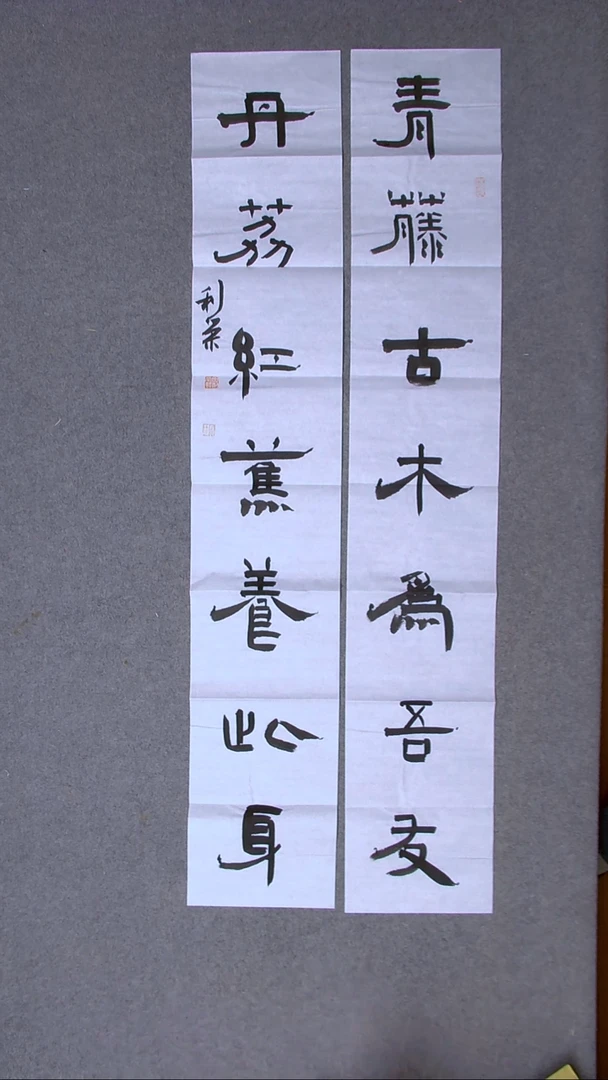 青藤古木為吾友
丹荔紅蕉養此身
利榮